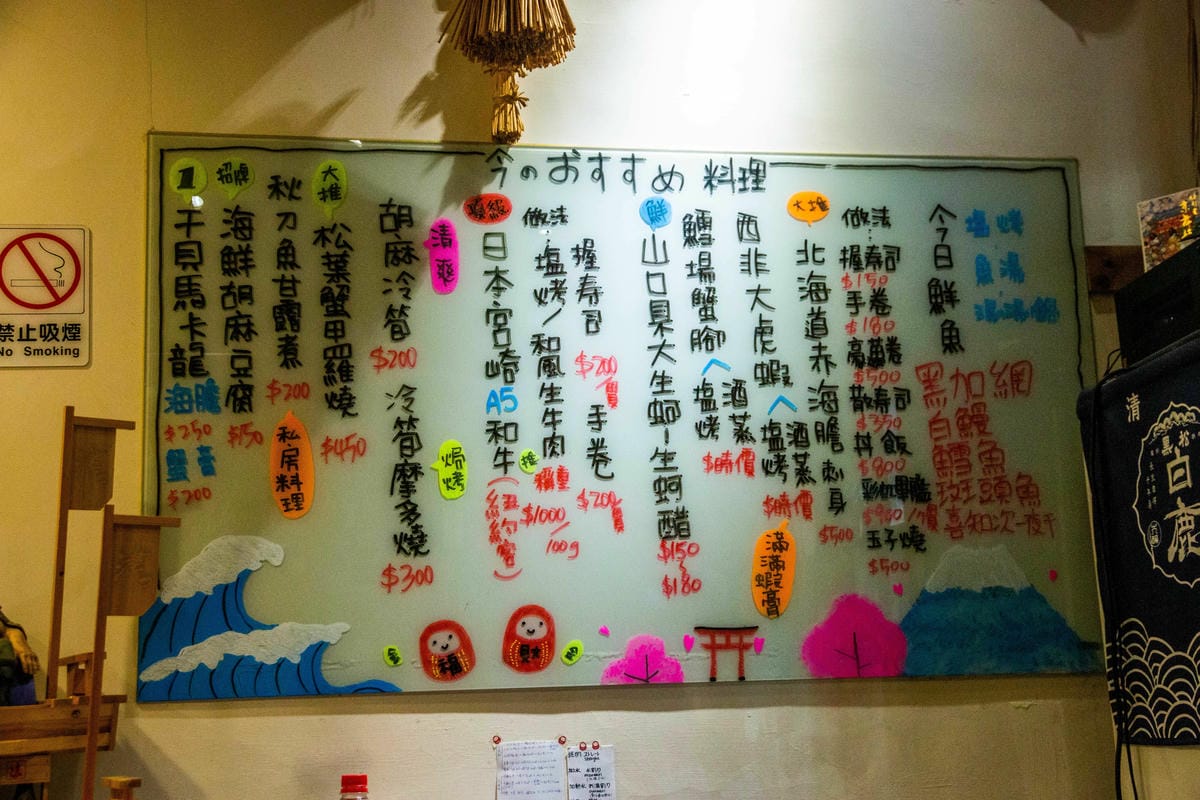 今のおすすめ 料理
塩烤
魚湯
今日鮮魚
黑加網
白鰻
鱈魚
斑頭魚
喜知次一夜干
做法:
握壽司
$150
手卷
$180
豪華卷
$500
散壽司
$350
丼飯
$800
玉子燒
$500
大推
北海道赤海膽刺身
$500
西非大虎蝦
酒蒸
塩烤
$時價
滿滿蝦膏
鱈場蟹腳
酒蒸
塩烤
$時價
鮮
山口県大生蚵-生蚵醋
$150
~
$180
握壽司
$200/貫
手卷
$200/貫
做法:塩烤/和風生牛肉
推
$1000/100g
日本宮崎A5和牛
(紐約客)
清爽
胡麻冷筍
$200
冷筍摩多燒
$300
焗烤
大推
松葉蟹甲羅燒
$450
秋刀魚甘露煮
$200
私房料理
招牌
海鮮胡麻豆腐
$150
1
干貝馬卡龍
海膽
$250
蟹膏
$200
福
財
禁止吸煙
No Smoking
清
白鹿